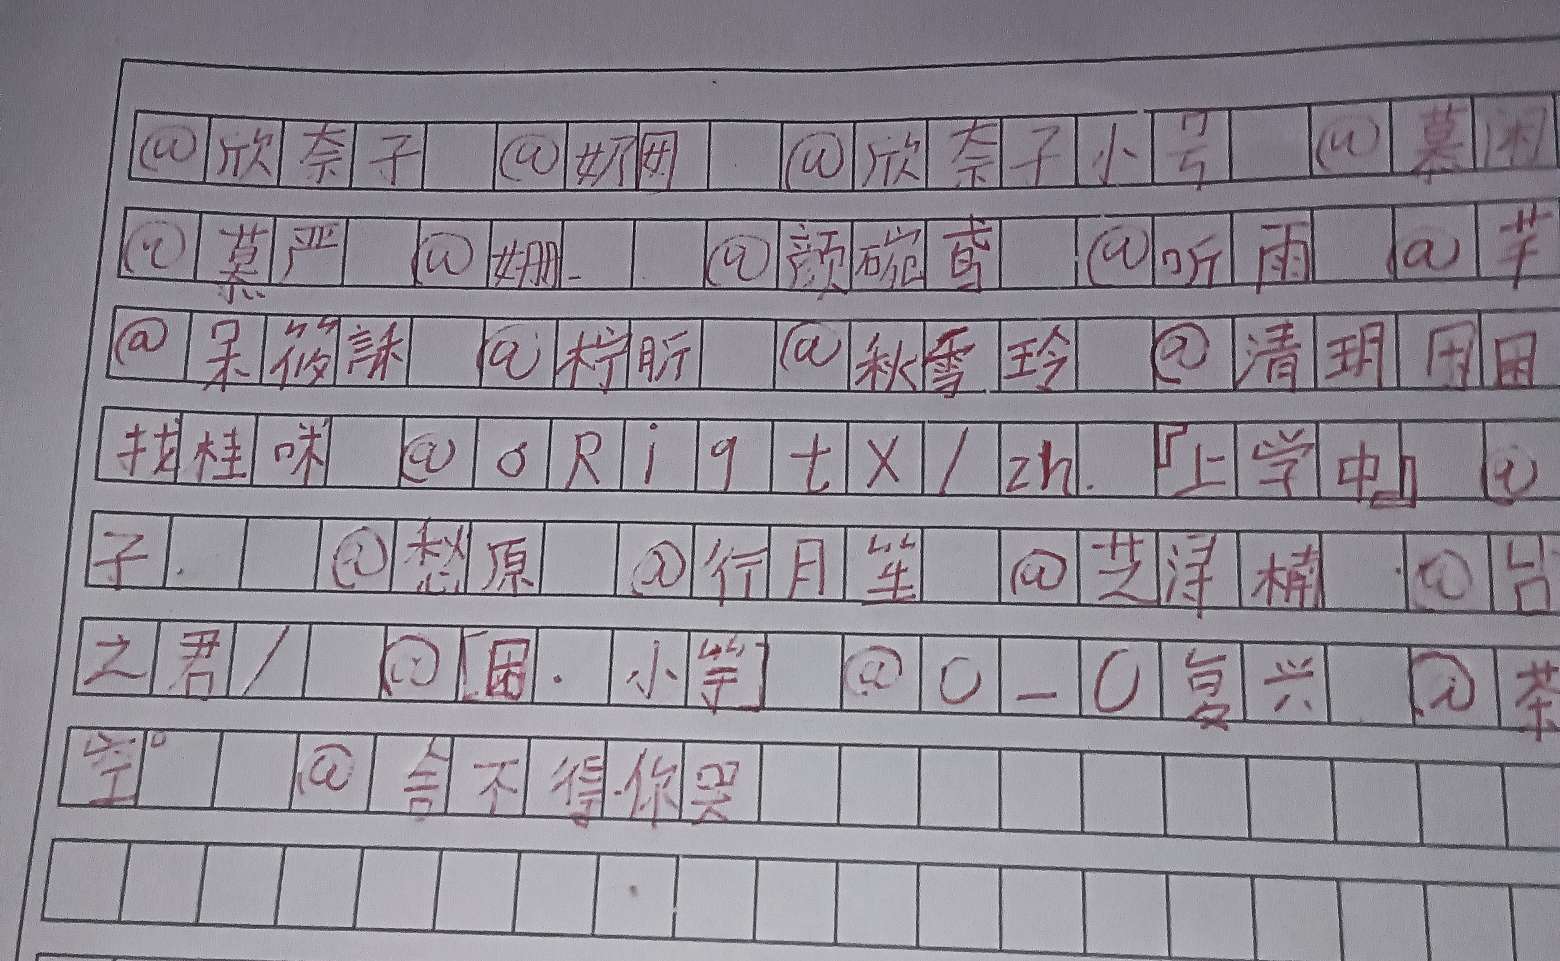 @欣奈子 @妎囡 @欣奈子小号 @慕闲
@慕严 @姗_ @颜碗鸢 @听雨 @芊
@呆筱誄 @柠昕 @秋雪玲 @清玥 困
找桂咪 @oRiqtX/zh.『上学中』@
子. @愁原 @行月笙 @芝浔楠 @
之君/ @「困·小竽」 @O_O复兴 @茶
空° @舍不得你哭